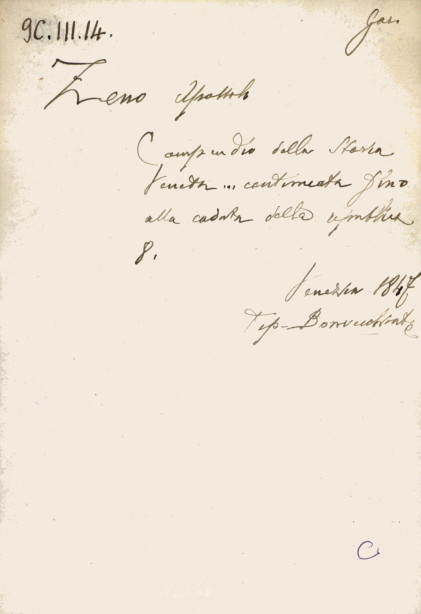 9C.III.14.
Zeno Apostolo
Compendio della Storia
Veneta ... continuata fino
alla caduta della republica
8.
Venezia 1847
Tip. Bonvecchiato
C